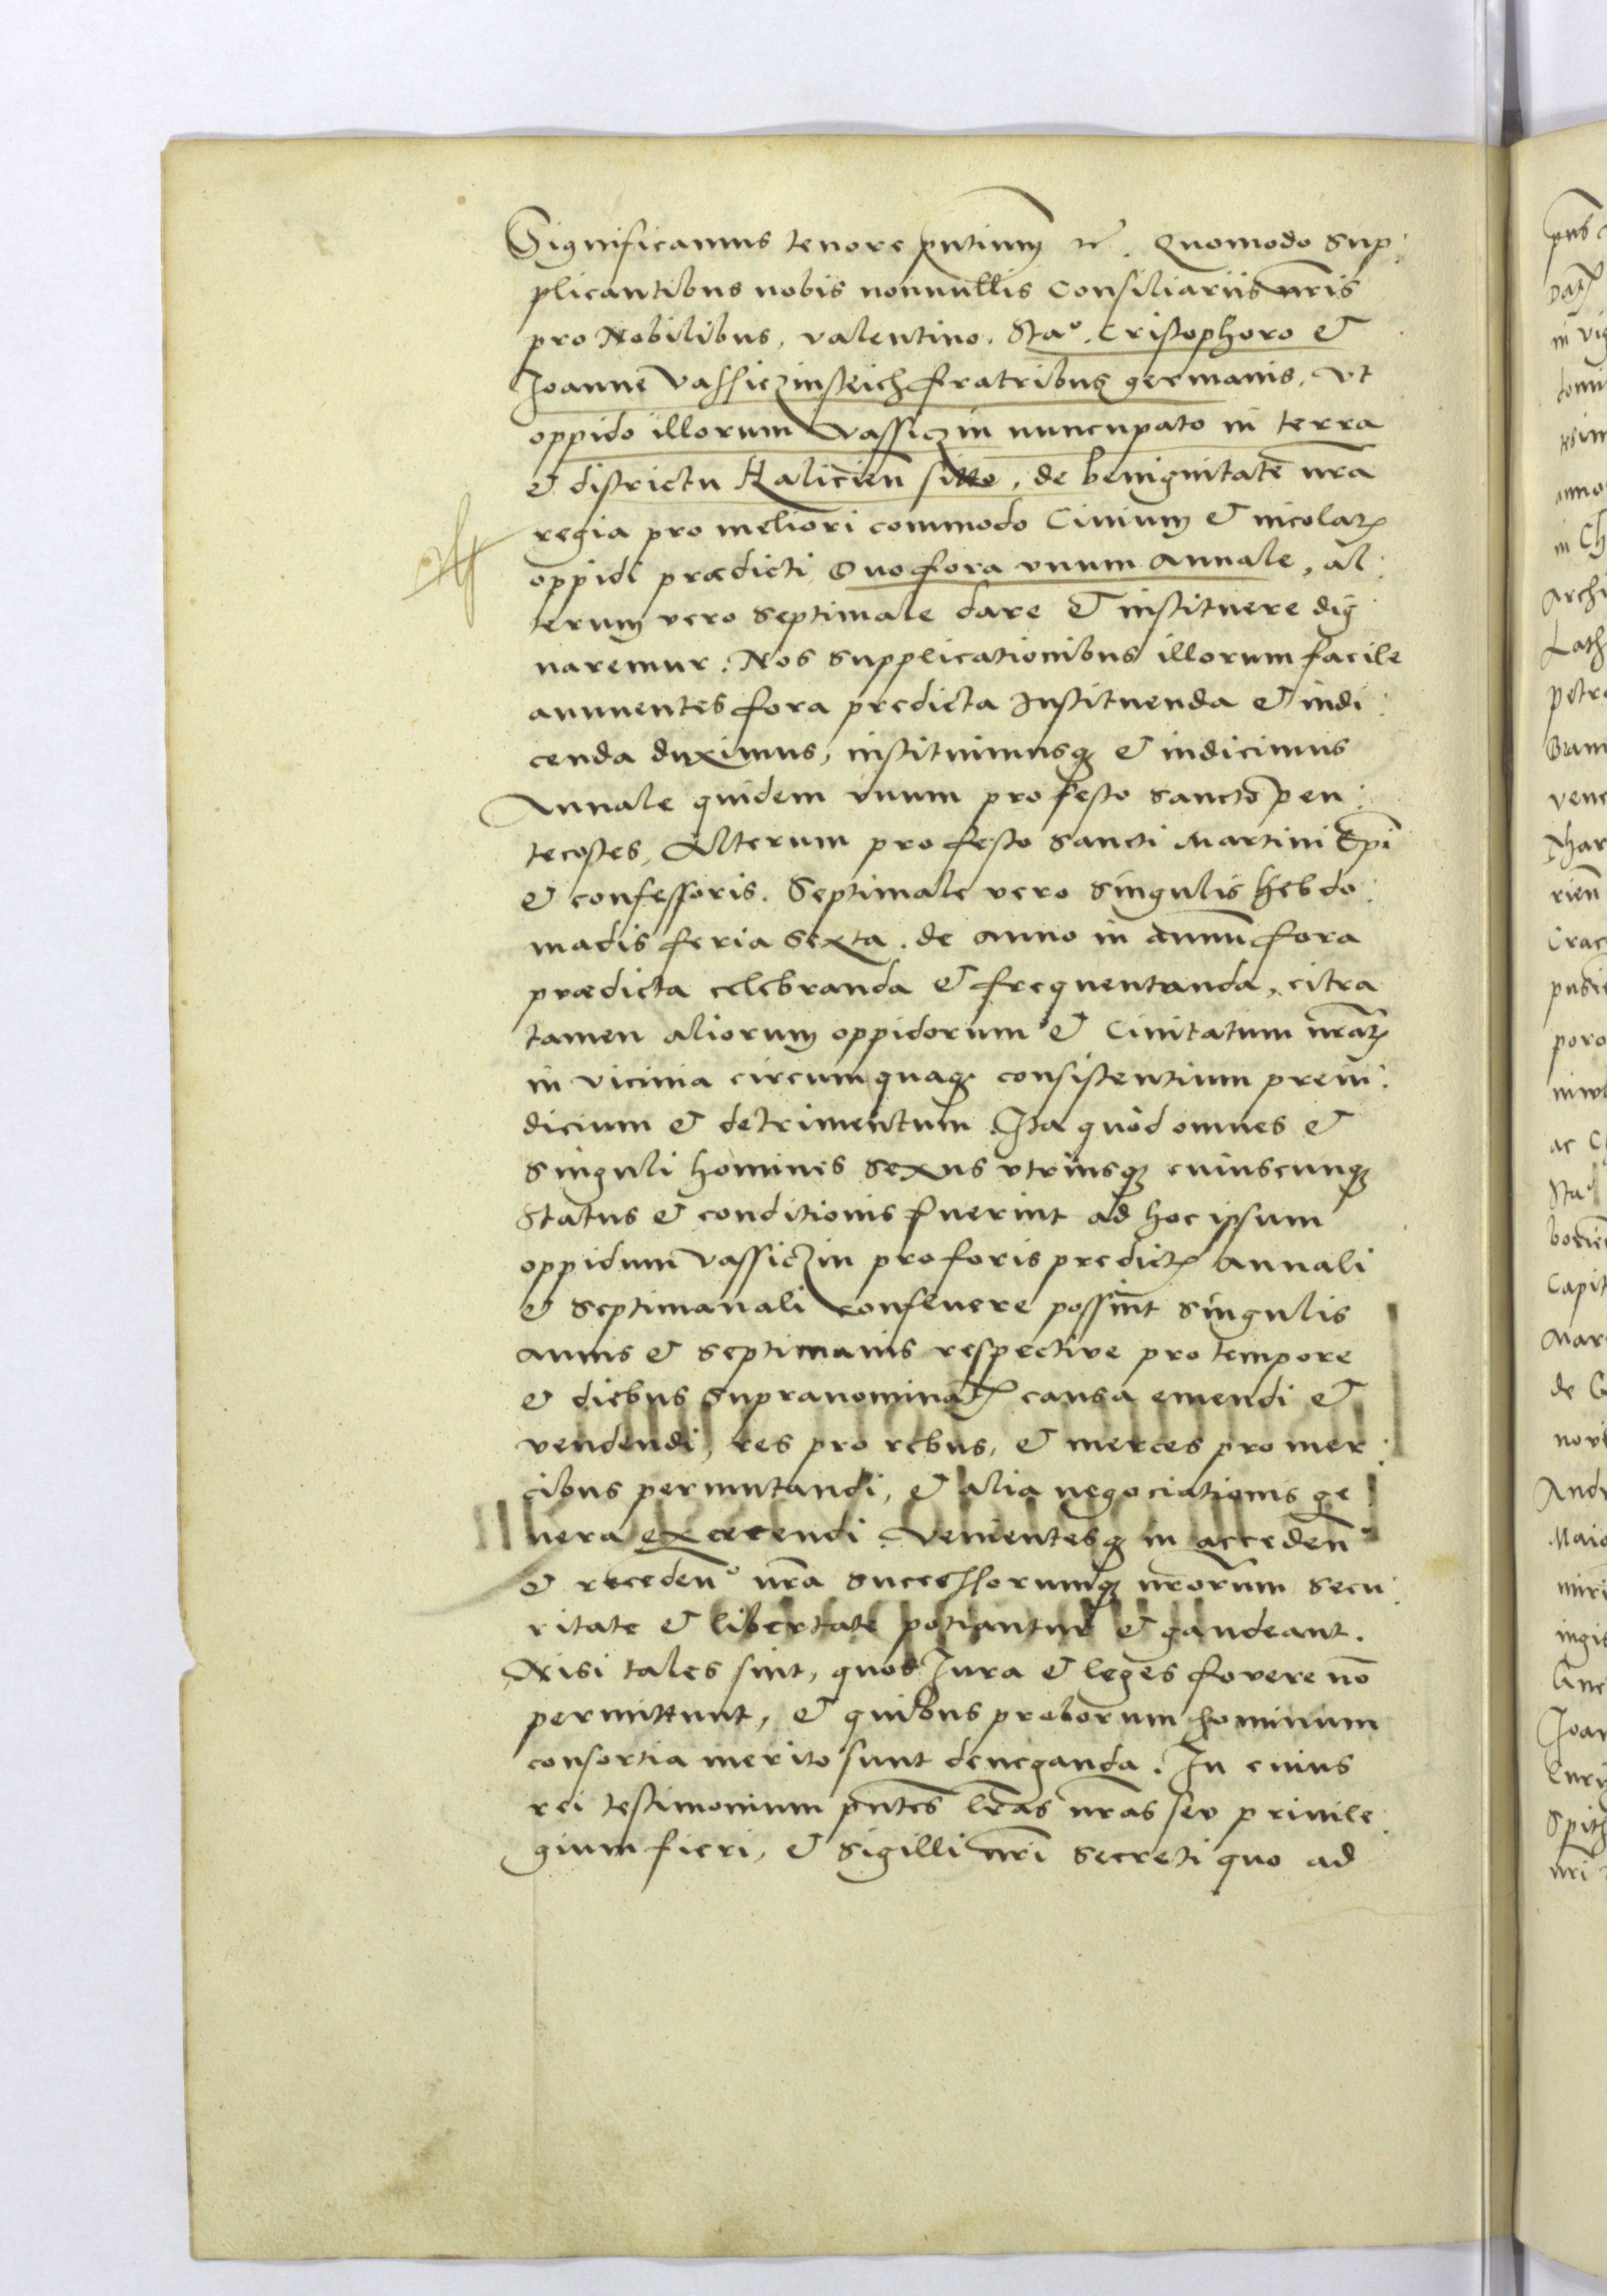 Significamus tenore pntium etc. Quomodo sup:
plicantibus nobis nonnullis Consiliariis nris
pro Nobilibus, valentino. Stao. Cristophoro &
Joanne Vassiczinskich fratribus germanis, ut
oppido illorum Vassiczin nuncupato in terra
& districtu Halicien sitto, de benignitate nra
regia pro meliori commodo Civium & incolar
oppidi prædicti Duo fora unum Annale, al:
terum vero septimale dare & instituere dig
naremur. Nos supplicationibus illorum facile
annuentes fora predicta Instituenda & indi:
cenda duximus, instituimusq & indicimus
Annale quidem unum pro festo sancto pen:
tecostes, Alterum pro festo Sancti Martini Epi
& confessoris. Septimale vero singulis hebdo:
madis feria sexta. de anno in annu fora
prædicta celebranda & frequentanda, citra
tamen aliorum oppidorum & Civitatum nrar
in vicinia circumquaq consistentium preiu:
dicium & detrimentum. Ita quod omnes &
singuli homines sexus utriusq cuiuscunq
status & conditionis fuerint ad hoc ipsum
oppidum Vassiczin pro foris predict Annali
& septimanali confluere possint singulis
annis & septimanis respective pro tempore
& diebus supranominat causa emendi &
vendendi, res pro rebus, & merces pro mer:
cibus permutandi, & alia negociationis ge
nera exercendi. Venientesq in acceden
& receden nra successorumq nrorum secu:
ritate & libertate potiantur & gaudeant.
Nisi tales sint, quos Jura & leges fovere no
permittunt, & quibus proborum hominum
consortia merito sunt deneganda. In cuius
rei testimonium pntes lras nras seu privile
gium fieri, & sigilli nri secreti quo ad